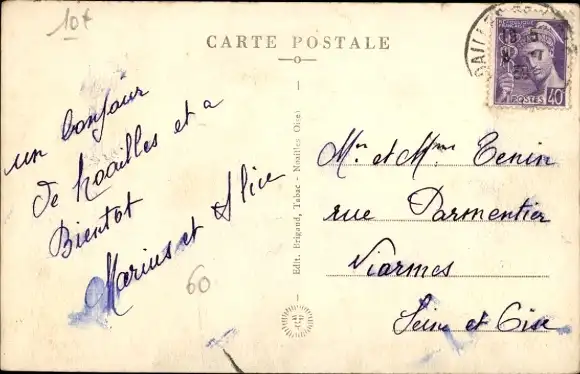 10€
CARTE POSTALE
un bonjour
de Noailles et a
Bientot
Marius et Alice
60
Edit. Brigaud, Tabac - Noailles (Oise)
NOAILLES
18 5
POSTES 40
Mr. et Mme Tenin
rue Parmentier
Viarmes
Seine et Oise